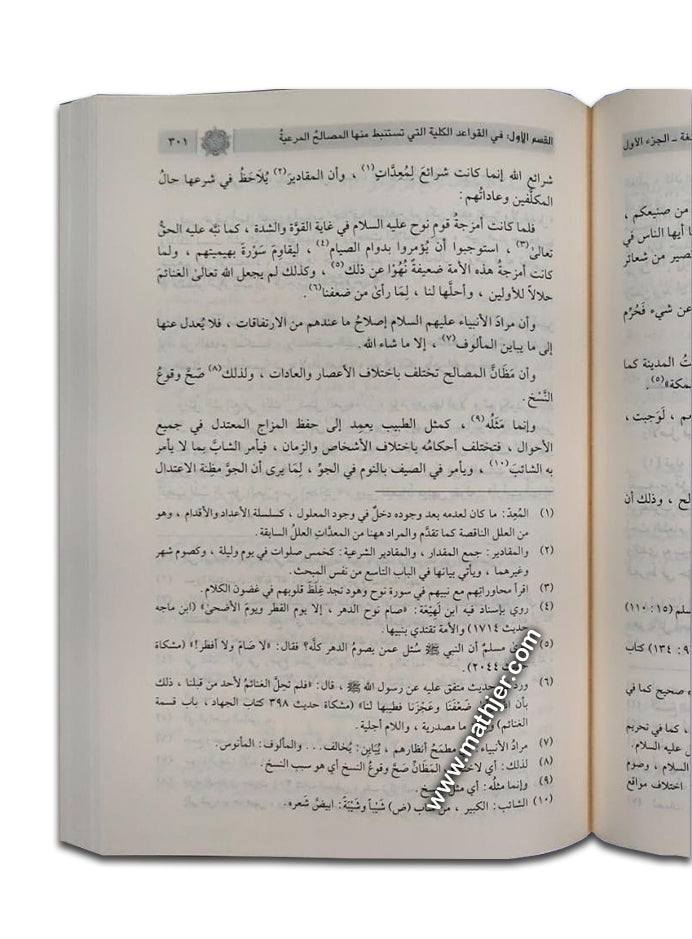 القسم الأول: في القواعد الكلية التي تستنبط منها المصالحُ المرعيةُ
٣٠١
شرائع الله إنما كانت شرائعَ لِمُعِدَّاتٍ(١) ، وأن المقاديرَ(٢) يُلاحَظُ في شرعها حالُ
المكلَّفين وعاداتُهم:
فلما كانت أمزجةُ قوم نوح عليه السلام في غاية القوَّة والشدة ، كما نبَّه عليه الحقُّ
تعالىٰ(٣) ، استوجبوا أن يُؤمروا بدوام الصيام(٤) ، ليقاوِمَ سَوْرةَ بهيميتهم ، ولما
كانت أمزجةُ هذه الأمة ضعيفةً نُهُوْا عن ذلك(٥) ، وكذلك لم يجعل الله تعالىٰ الغنائمَ
حلالاً للأولين ، وأحلَّها لنا ، لِمَا رأىٰ من ضعفنا(٦).
وأن مرادَ الأنبياء عليهم السلام إصلاحُ ما عندهم من الارتفاقات ، فلا يُعدل عنها
إلى ما يباين المألوف(٧) ، إلا ما شاء الله.
وأن مَظَانَّ المصالح تختلف باختلاف الأعصار والعادات ، ولذلك(٨) صَحَّ وقوعُ
النَّسْخ.
وإنما مَثَلُه(٩) ، كمثل الطبيب يعمِد إلى حفظ المزاج المعتدل في جميع
الأحوال ، فتختلف أحكامُه باختلاف الأشخاص والزمان ، فيأمر الشابَّ بما لا يأمر
به الشائبَ(١٠) ، ويأمر في الصيف بالنوم في الجوِّ ، لِمَا يرى أن الجوَّ مظِنة الاعتدال
(١) المُعِدّ: ما كان لعدمه بعد وجوده دخلٌ في وجود المعلول ، كسلسلة الأعداد والأقدام ، وهو
من العلل الناقصة كما تقدَّم والمراد ههنا من المعدَّاتِ العللُ السابقة.
(٢) والمقادير: جمع المقدار ، والمقادير الشرعية: كخمس صلوات في يوم وليلة ، وكصوم شهر
وغيرهما ، ويأتي بيانها في الباب التاسع من نفس المبحث.
(٣) اقرأ محاوراتِهم مع نبيهم في سورة نوح وهود تجد غِلَظَ قلوبهم في غضون الكلام.
(٤) روي بإسناد فيه ابن لَهِيْعَة: «صام نوح الدهر ، إلا يوم الفطر ويومَ الأضحىٰ» (ابن ماجه
حديث ١٧١٤) والأمة تقتدي بنبيها.
(٥) مسلمٌ أن النبي ﷺ سُئل عمن يصومُ الدهر كلَّه؟ فقال: «لا صَامَ ولا أفطر!» (مشكاة
٢٠٤٤).
(٦) حديث متفق عليه عن رسول الله ﷺ ، قال: «فلم تحِلَّ الغنائمُ لأحد من قبلنا ، ذلك
بأن ضَعْفَنَا وعَجْزَنا فطيبها لنا» (مشكاة حديث ٣٩٨ كتاب الجهاد ، باب قسمة
الغنائم) مصدرية ، واللام أجلية.
(٧) مرادُ الأنبياء مطمَحُ أنظارهم ، يُبَاين: يُخالف... والمألوف: المأنوس.
(٨) لذلك: أي المَظَانِّ صَحَّ وقوعُ النسخ أي هو سبب النسخ.
(٩) وإنما مثلُه: أي
(١٠) الشائب: الكبير ، (ض) شَيْباً وشَيْبَةً: ابيضَّ شعره.
غة - الجزء الأول
من صنيعكم ،
ا أيها الناس في
صير من شعائر
عن شيء فَحُرِّم
تُ المدينة كما
مكة»(٥).
م ، لَوَجبت ،
لح ، وذلك أن
سلم (١٥ : ١١٠)
٩ : ١٣٤) كتاب
ه صحيح كما في
، كما في تحريم
ل عليه السلام.
السلام ، وصوم
اختلاف مواقع
www.mathjer.com